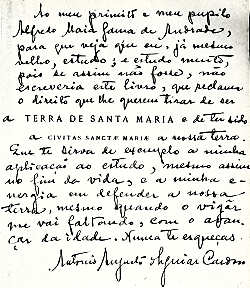 Ao meu primito e meu pupilo
Alfredo Maia Gama de Andrade,
para que veja que eu, já mesmo
velho, estudo; e estudo muito,
pois se assim não fosse, não
escreveria este livro, que reclama
o direito que lhe querem tirar de ser
a TERRA DE SANTA MARIA e de ter sido
a CIVITAS SANCTÆ MARIÆ a nossa terra.
Que te sirva de exemplo a minha
aplicação ao estudo, mesmo assim
no fim da vida, e a minha e-
nergia em defender a nossa
terra, mesmo quando o vigôr
me vai faltando, com o avan-
çar da idade. Nunca te esqueças.
Antonio Augusto Aguiar Cardoso